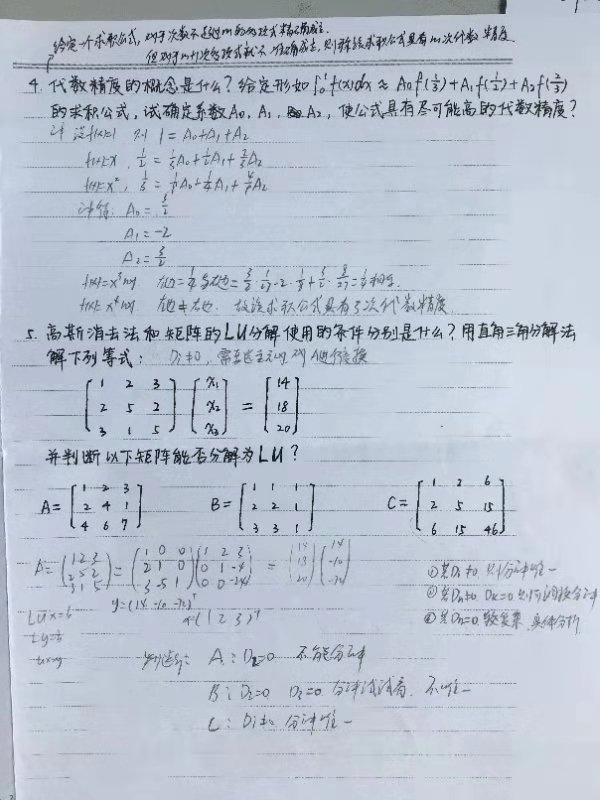 给定一个求积公式，对于次数不超过m的多项式精确成立
但对于m+1次多项式就不准确成立，则称该求积公式具有m次代数精度
4. 代数精度的概念是什么？给定形如∫₀¹f(x)dx ≈ A₀f(1/3)+A₁f(1/2)+A₂f(2/3)
的求积公式，试确定系数A₀, A₁, A₂, 使公式具有尽可能高的代数精度？
f(x)=1 则 1=A₀+A₁+A₂
f(x)=x, 1/2=1/3A₀+1/2A₁+2/3A₂
f(x)=x², 1/3=1/9A₀+1/4A₁+4/9A₂
A₀=3/2
A₁=-2
A₂=3/2
f(x)=x³时 左边=1/4 右边=3/2·1/27-2·1/8+3/2·8/27=1/4 相等
f(x)=x⁴时 左边≠右边. 故该求积公式具有3次代数精度
5. 高斯消去法和矩阵的LU分解使用的条件分别是什么？用直角三角分解法
解下列等式： Di≠0,
[1 2 3; 2 5 2; 3 1 5] [x₁; x₂; x₃] = [14; 18; 20]
并判断以下矩阵能否分解为LU？
A=[1 2 3; 2 4 1; 4 6 7] B=[1 1 1; 2 2 1; 3 3 1] C=[1 2 6; 2 5 15; 6 15 46]
A=(1 2 3; 2 5 2; 3 1 5)=(1 0 0; 2 1 0; 3 -5 1)(1 2 3; 0 1 -4; 0 0 -24) = (14; 18; 20)(14; -10; -72)
①若Di≠0 则分解唯一
LUx=b y=(14 -10 -72)ᵀ
Ly=b x=(1 2 3)ᵀ
Ux=y
A: D₂=0 不能分解
B: D₂=0 D₃=0 分解试试看. 不唯一
C: Di≠0 分解唯一